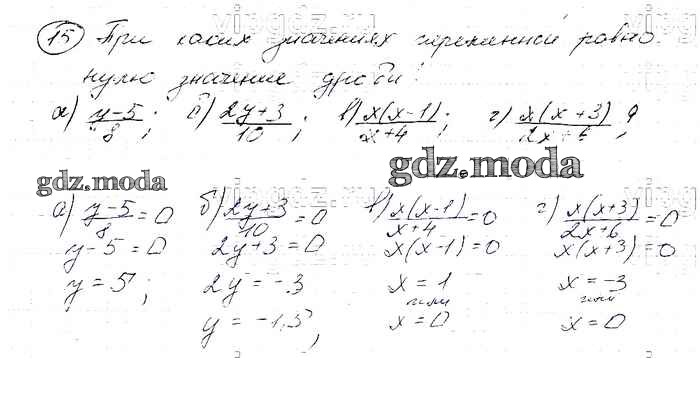 15 При каких значениях переменной равно
нулю значение дроби:
а) y-5/8; б) 2y+3/10; в) x(x-1)/x+4; г) x(x+3)/2x+6 ?
gdz.moda
gdz.moda
а) y-5/8=0 б) 2y+3/10=0 в) x(x-1)/x+4=0 г) x(x+3)/2x+6=0
y-5=0 2y+3=0 x(x-1)=0 x(x+3)=0
y=5; 2y=-3 x=1 x=-3
или или
y=-1,5; x=0 x=0